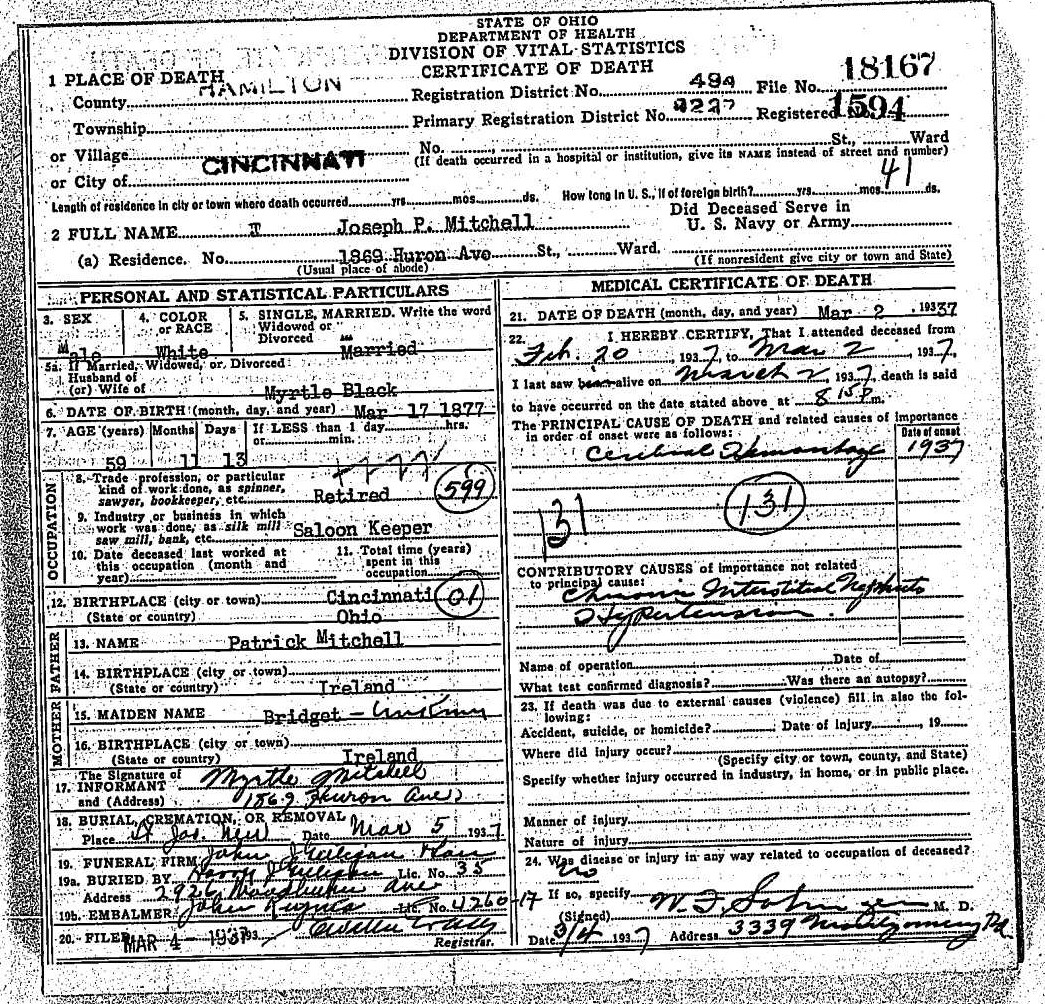 STATE OF OHIO
DEPARTMENT OF HEALTH
DIVISION OF VITAL STATISTICS
CERTIFICATE OF DEATH
1 PLACE OF DEATH
County HAMILTON
Registration District No. 494 File No. 18167
Township
Primary Registration District No. 8227 Registered No. 1594
or Village
No. St., Ward
(If death occurred in a hospital or institution, give its NAME instead of street and number)
or City of CINCINNATI
Length of residence in city or town where death occurred yrs. mos. ds. How long in U. S., if of foreign birth? yrs. mos. ds. 41
2 FULL NAME T Joseph P. Mitchell
Did Deceased Serve in
U. S. Navy or Army
(a) Residence. No. 1869 Huron Ave St., Ward.
(Usual place of abode) (If nonresident give city or town and State)
PERSONAL AND STATISTICAL PARTICULARS
3. SEX
Male
4. COLOR
or RACE
White
5. SINGLE, MARRIED. Write the word
Widowed or
Divorced
Married
5a. If Married, Widowed, or Divorced
Husband of
(or) Wife of Myrtle Black
6. DATE OF BIRTH (month, day, and year) Mar 17 1877
7. AGE (years) Months Days If LESS than 1 day hrs.
or min.
59 11 13
OCCUPATION
8. Trade profession, or particular
kind of work done, as spinner,
sawyer, bookkeeper, etc. Retired 599
9. Industry or business in which
work was done, as silk mill
saw mill, bank, etc. Saloon Keeper
10. Date deceased last worked at
this occupation (month and
year)
11. Total time (years)
spent in this
occupation
12. BIRTHPLACE (city or town) Cincinnati 01
(State or country) Ohio
FATHER
13. NAME Patrick Mitchell
14. BIRTHPLACE (city or town)
(State or country) Ireland
MOTHER
15. MAIDEN NAME Bridget -
16. BIRTHPLACE (city or town)
(State or country) Ireland
17. The Signature of
INFORMANT Myrtle Mitchell
and (Address) 1869 Huron Ave
18. BURIAL, CREMATION, OR REMOVAL
Place St Jos. New Date Mar 5 1937
19. FUNERAL FIRM John J Gilligan
19a. BURIED BY Harry J Gilligan Lic. No. 35
Address 2926 Woodburn Ave
19b. EMBALMER John Lic. No. 4260-17
20. FILED MAR 4 - 1937 193
Registrar.
MEDICAL CERTIFICATE OF DEATH
21. DATE OF DEATH (month, day, and year) Mar 2 , 19337
22. I HEREBY CERTIFY, That I attended deceased from
Feb. 20 , 1937, to Mar 2 , 1937,
I last saw him alive on March 2, 1937, death is said
to have occurred on the date stated above at 8 15 P.m.
The PRINCIPAL CAUSE OF DEATH and related causes of importance
in order of onset were as follows:
Date of onset
Cerebral Hemorrhage 1937
131
131
CONTRIBUTORY CAUSES of importance not related
to principal cause:
Chronic Interstitial Nephritis
Hypertension
Name of operation Date of
What test confirmed diagnosis? Was there an autopsy?
23. If death was due to external causes (violence) fill in also the fol-
lowing:
Accident, suicide, or homicide? Date of injury , 19
Where did injury occur?
(Specify city or town, county, and State)
Specify whether injury occurred in industry, in home, or in public place.
Manner of injury
Nature of injury
24. Was disease or injury in any way related to occupation of deceased?
No
If so, specify
(Signed) M. D.
Date 3/4 1937 Address 3339 Montgomery Rd